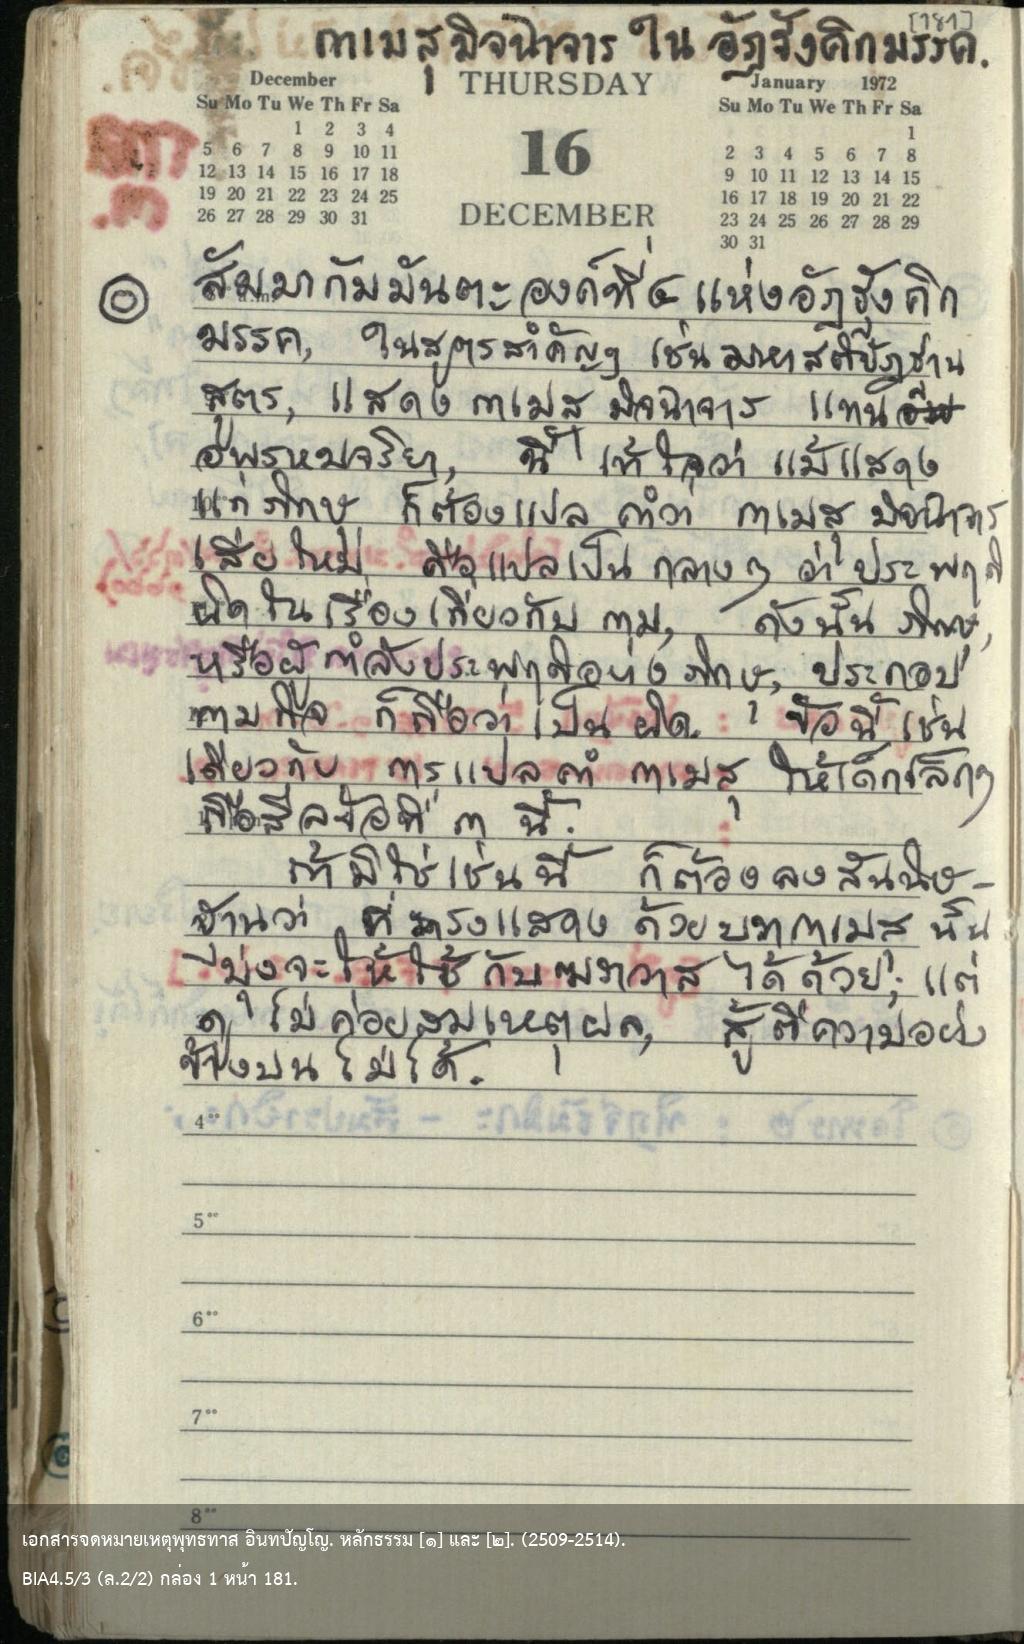 [181]
กาเมสุมิจฉาจาร ใน อัฏฐังคิกมรรค.
December
Su Mo Tu We Th Fr Sa
1 2 3 4
5 6 7 8 9 10 11
12 13 14 15 16 17 18
19 20 21 22 23 24 25
26 27 28 29 30 31
THURSDAY
16
DECEMBER
January 1972
Su Mo Tu We Th Fr Sa
1
2 3 4 5 6 7 8
9 10 11 12 13 14 15
16 17 18 19 20 21 22
23 24 25 26 27 28 29
30 31
สัมมากัมมันตะ องค์ที่ ๔ แห่งอัฏฐังคิก
มรรค, ในสูตรสำคัญๆ เช่น มหาสติปัฏฐาน
สูตร, แสดง กาเมสุมิจฉาจาร แทน
อพรหมจริยา, นี้ ให้ใจว่า แม้แสดง
แก่ ภิกษุ ก็ต้องแปล คำว่า กาเมสุมิจฉาจาร
เสียใหม่ คือแปลเป็น กลางๆ ว่า ประพฤติ
ผิดในเรื่องเกี่ยวกับ กาม, ดังนั้น ภิกษุ,
หรือผู้กำลังประพฤติอย่างภิกษุ, ประกอบ
กามกิจ ก็ถือว่า เป็น ผิด. ข้อนี้ เช่น
เดียวกับ การแปลคำ กาเมสุ ให้เด็กเล็กๆ
ถือศีลข้อที่ ๓ นี้.
ถ้ามิใช่เช่นนี้ ก็ต้องลงสันนิษ-
ฐานว่า ที่ทรงแสดง ด้วยบทกาเมสุ นั้น
มุ่งจะให้ใช้ กับฆราวาส ได้ด้วย; แต่
ดูไม่ค่อยสมเหตุผล, สู้ตีความอย่าง
ข้างบนไม่ได้.
4°°
5°°
6°°
7°°
8°°
เอกสารจดหมายเหตุพุทธทาส อินทปัญโญ. หลักธรรม [๑] และ [๒]. (2509-2514).
BIA4.5/3 (ล.2/2) กล่อง 1 หน้า 181.